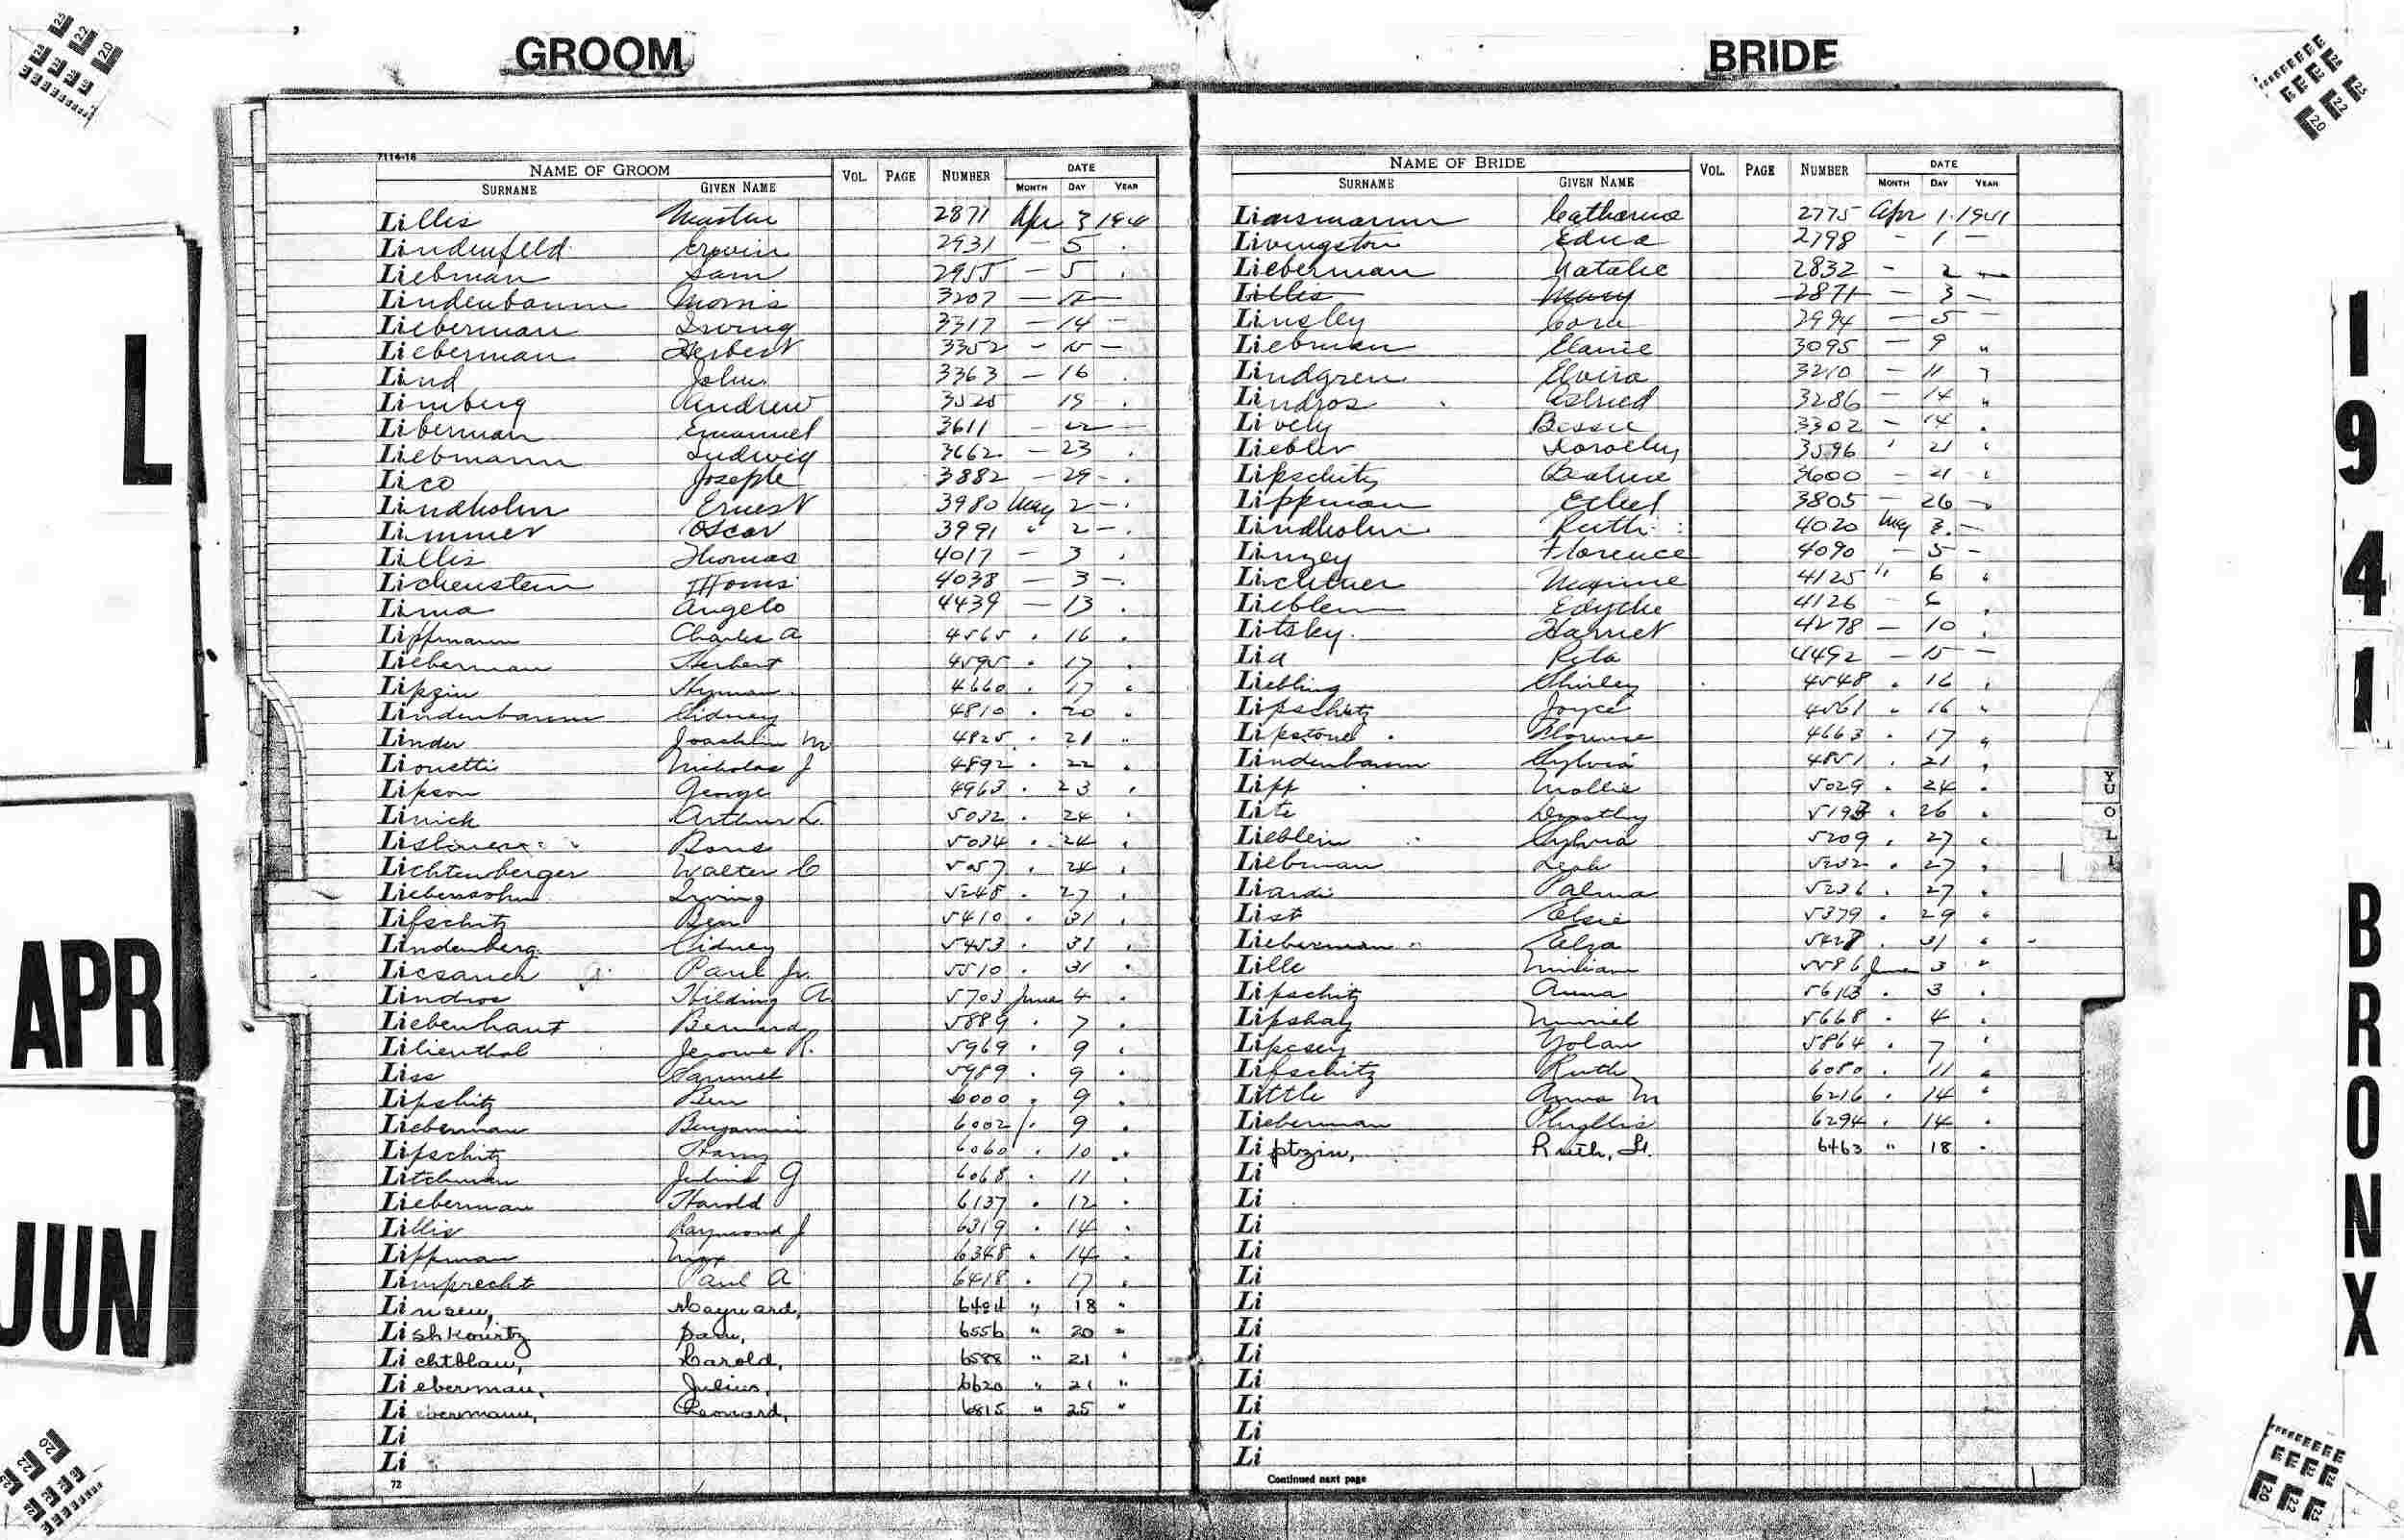 GROOM
BRIDE
L
APR
JUN
1941
BRONX
7114-16
NAME OF GROOM VOL. PAGE NUMBER DATE
SURNAME GIVEN NAME MONTH DAY YEAR
Lillis Martin 2871 Apr 3 194
Lindenfeld Erwin 2931 — 5 .
Liebman Sam 2955 — 5 .
Lindenbaum Morris 3207 — —
Lieberman Irving 3317 — 14 —
Lieberman Herbert 3352 — 15 —
Lind John 3363 — 16 .
Limberg Andrew 19 .
Liberman Emanuel 3611 — 22 —
Liebmann Ludwig 3662 — 23 .
Lico Joseph 3882 — 29 - .
Lindholm Ernest 3980 May 2 — .
Limmer Oscar 3991 " 2 — .
Lillis Thomas 4017 — 3 .
Lichenstein 4038 — 3 — .
Lima Angelo 4439 — 13 .
Lippmann Charles A 4565 . 16 .
Lieberman Herbert 4595 . 17 .
Lipzin Hyman 4660 . 17 .
Lindenbaum Sidney 4810 . 20 .
Linder Joachim M 4825 . 21 "
Lionetti Nicholas J 4892 . 22 .
Lipson George 4963 . 23 .
Linick Arthur L. 5032 . 24 .
Boris 5034 . 24 .
Lichtenberger Walter C 5057 . 24 .
Liebensohn Irving 5248 . 27 .
Lifschitz Ben 5410 . 31 .
Lindenberg Sidney 5453 . 31 .
Paul Jr. 5510 . 31 .
Lindros Hilding A 5703 June 4 .
Liebenhaut Bernard 5889 . 7 .
Lilienthal Jerome R. 5969 . 9 .
Liss Samuel 5989 . 9 .
Lipshitz Ben 6000 . 9 .
Lieberman Benjamin 6002 . 9 .
Lifschitz Harry 6060 . 10 .
Litchman Julius G 6068 . 11 .
Lieberman Harold 6137 . 12 .
Lillis Raymond J 6319 . 14 .
Lippman Max 6348 . 14 .
Limprecht Paul A 6418 . 17 .
Linsew, Maynard, 6484 " 18 "
Lishkowitz Sam, 6556 " 20 "
Lichtblau, Harold, 6588 " 21 "
Lieberman, Julius, 6620 " 21 "
Liebermann, Leonard, 6815 " 25 "
Li
Li
72
NAME OF BRIDE VOL. PAGE NUMBER DATE
SURNAME GIVEN NAME MONTH DAY YEAR
Catherine 2775 Apr 1 1941
Livingston Edna 2798 - 1 —
Lieberman Natalie 2832 - 2 —
Lillis Mary 2871 — 3 —
Linsley Cora 2994 — 5 —
Liebman Elanie 3095 — 9 "
Lindgren Elvira 3210 — 11 "
Lindros Astried 3286 — 14 "
Lively Bessie 3302 — 14 .
Liebler Dorothy 3596 ' 21 .
Lipschitz Beatrice 3600 — 21 .
Lippman Ethel 3805 — 26 —
Lindholm Ruth 4020 May 3 . —
Linzey Florence 4090 — 5 —
Lichtner Maxine 4125 " 6 .
Lieblein Edythe 4126 — 6 .
Litsky Harriet 4278 — 10 .
Lia Rita 4492 — 15 —
Liebling Shirley 4548 . 16 .
Lipschitz Joyce 4561 " 16 "
Lipstone Florence 4663 . 17 "
Lindenbaum Sylvia 4851 . 21 .
Lipp Mollie 5029 . 24 .
Lite Dorothy 5193 . 26 .
Lieblein Sylvia 5209 . 27 .
Liebman Leah 5232 . 27 .
Liardi Palma 5236 . 27 .
List Elsie 5379 . 29 .
Lieberman Elsa 5428 . 31 .
Lille Miriam 5586 June 3 "
Lipschitz Anna 5613 . 3 .
Lipshay Muriel 5668 . 4 .
Lipcsey Yolan 5864 . 7 .
Lifschitz Ruth 6080 . 11 .
Little Anna M 6216 . 14 .
Lieberman Phyllis 6294 . 14 .
Liptzin, Ruth, H. 6463 " 18 .
Li
Li
Li
Li
Li
Li
Li
Li
Li
Li
Li
Li
Continued next page